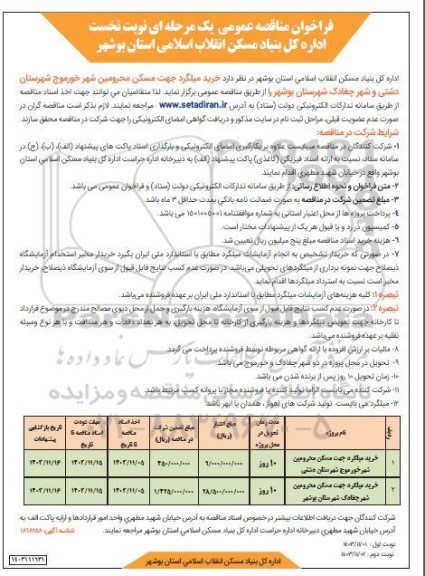 فراخوان مناقصه عمومی یک مرحله ای نوبت نخست
اداره کل بنیاد مسکن انقلاب اسلامی استان بوشهر
اداره کل بنیاد مسکن انقلاب اسلامی استان بوشهر در نظر دارد خرید میلگرد جهت مسکن محرومین شهر خورموج شهرستان
دشتی و شهر چغادک شهرستان بوشهر را از طریق مناقصه عمومی برگزار نماید. لذا متقاضیان می توانند جهت اخذ اسناد مناقصه
از طریق سامانه تدارکات الکترونیکی دولت (ستاد) به آدرس www.setadiran.ir مراجعه نمایند. لازم بذکر است مناقصه گران در
صورت عدم عضویت قبلی، مراحل ثبت نام در سایت مذکور و دریافت گواهی امضای الکترونیکی را جهت شرکت در مناقصه محقق سازند.
شرایط شرکت در مناقصه:
۱- شرکت کنندگان در مناقصه میبایست علاوه بر بکارگیری امضای الکترونیکی و بارگذاری اسناد پاکت های پیشنهاد (الف)، (ب)، (ج) در
سامانه ستاد، نسبت به ارائه اسناد فیزیکی (کاغذی) پاکت پیشنهاد (الف) به دبیرخانه اداره حراست اداره کل بنیاد مسکن انقلاب اسلامی استان
بوشهر واقع در خیابان شهید مطهری اقدام نمایند.
۲- متن فراخوان و نحوه اطلاع رسانی: از طریق سامانه تدارکات الکترونیکی دولت (ستاد) و فراخوان عمومی می باشد.
۳- مبلغ تضمین شرکت در مناقصه به صورت ضمانت نامه بانکی بمدت حداقل ۳ ماه باشد
۴- پرداخت پروژه ها از محل اعتبار استانی به شماره موافقتنامه ۱۵۰۱۰۰۵۰۰۱ می باشد.
۵- کمیسیون در رد و یا قبول هر یک از پیشنهادات مختار است.
۶- هزینه خرید اسناد مناقصه مبلغ پنج میلیون ریال تعیین شد.
۷- در صورتی که خریدار تشخیص به انجام آزمایشات میلگرد مطابق با استاندارد ملی ایران بگیرد خریدار مخیر استخدام آزمایشگاه
ذیصلاح جهت نمونه برداری از میلگردهای تحویلی می‌باشد. در صورت عدم کسب نتایج قابل قبول از سوی آزمایشگاه ذیصلاح، خریدار
مخیر است نسبت به استرداد میلگردها اقدام نماید.
تبصره ۱: کلیه هزینه‌های آزمایشات میلگرد مطابق با استاندارد ملی ایران بر عهده فروشنده می‌باشد.
تبصره ۲: در صورت عدم کسب نتایج قابل قبول از سوی آزمایشگاه، هزینه بارگیری و حمل از محل دپوی مصالح مندرج در موضوع قرارداد
تا کارخانه جهت تعویض میلگردها و هزینه بارگیری از کارخانه تا محل تحویل، به هر تعداد دفعات و هر مسافت و با هر نوع وسیله
نقلیه بر عهده فروشنده می‌باشد.
۸- مالیات بر ارزش افزوده با ارائه گواهی مربوطه توسط فروشنده پرداخت می گردد.
۹- تحویل در محل پروژه در دو شهر چغادک و خورموج می باشد
۱۰- زمان تحویل ۱۰ روز پس از برنده شدن می باشد.
۱۱- شرکت کننده می بایست الزاما تولید کننده یا فروشنده مجاز با پروانه کسب مرتبط باشد.
۱۲- میلگرد می بایست تولید شرکت های اهواز، همدان یا ابهر باشد
ردیف | نام پروژه | مدت زمان تحویل در محل پروژه | مبلغ اعتبار (ریال) | مبلغ تضمین شرکت در مناقصه (ریال) | اخذ اسناد مناقصه تاریخ | مهلت عودت اسناد مناقصه تا تاریخ | تاریخ بازگشایی پیشنهادات
۱ | خرید میلگرد جهت مسکن محرومین شهر خورموج شهرستان دشتی | ۱۰ روز | ۹/۰۰۰/۰۰۰/۰۰۰ | ۴۵۰/۰۰۰/۰۰۰ | ۱۴۰۳/۱۱/۰۵ | ۱۴۰۳/۱۱/۱۵ | ۱۴۰۳/۱۱/۱۶
۲ | خرید میلگرد جهت مسکن محرومین شهر چغادک شهرستان بوشهر | ۱۰ روز | ۲۸/۵۰۰/۰۰۰/۰۰۰ | ۱/۴۲۵/۰۰۰/۰۰۰ | ۱۴۰۳/۱۱/۰۵ | ۱۴۰۳/۱۱/۱۵ | ۱۴۰۳/۱۱/۱۶
شرکت کنندگان جهت دریافت اطلاعات بیشتر در خصوص اسناد مناقصه به آدرس خیابان شهید مطهری واحد امور قراردادها و ارایه پاکت الف به
آدرس خیابان شهید مطهری دبیرخانه اداره حراست اداره کل بنیاد مسکن انقلاب اسلامی استان بوشهر مراجعه نمایند. شناسه آگهی:
نوبت اول : ۱۴۰۳/۱۱/۰۱
نوبت دوم : ۱۴۰۳/۱۱/۰۲
اداره کل بنیاد مسکن انقلاب اسلامی استان بوشهر